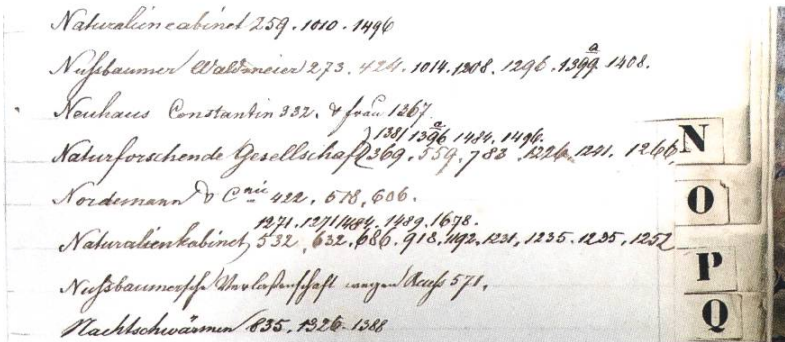 Naturaliencabinet 259. 1010. 1496
Nußbaumer Waldmeier 273. 424. 1014. 1208. 1296. 1399a 1408.
Neuhaus Constantin 332. & frau 1367.
1381 1396a 1484. 1496.
Naturforschende Gesellschaft) 369. 559. 783. 1226. 1241. 1266,
Nordemann & Cnie 422. 518. 606.
1271. 1271/1484. 1489. 1678.
Naturalienkabinet, 532. 632. 686. 918. 1192. 1231. 1235. 1235. 1252
Nußbaumersche Verlassenschaft wegen 571.
Nachtschwärmen 835. 1326. 1388
N
O
P
Q